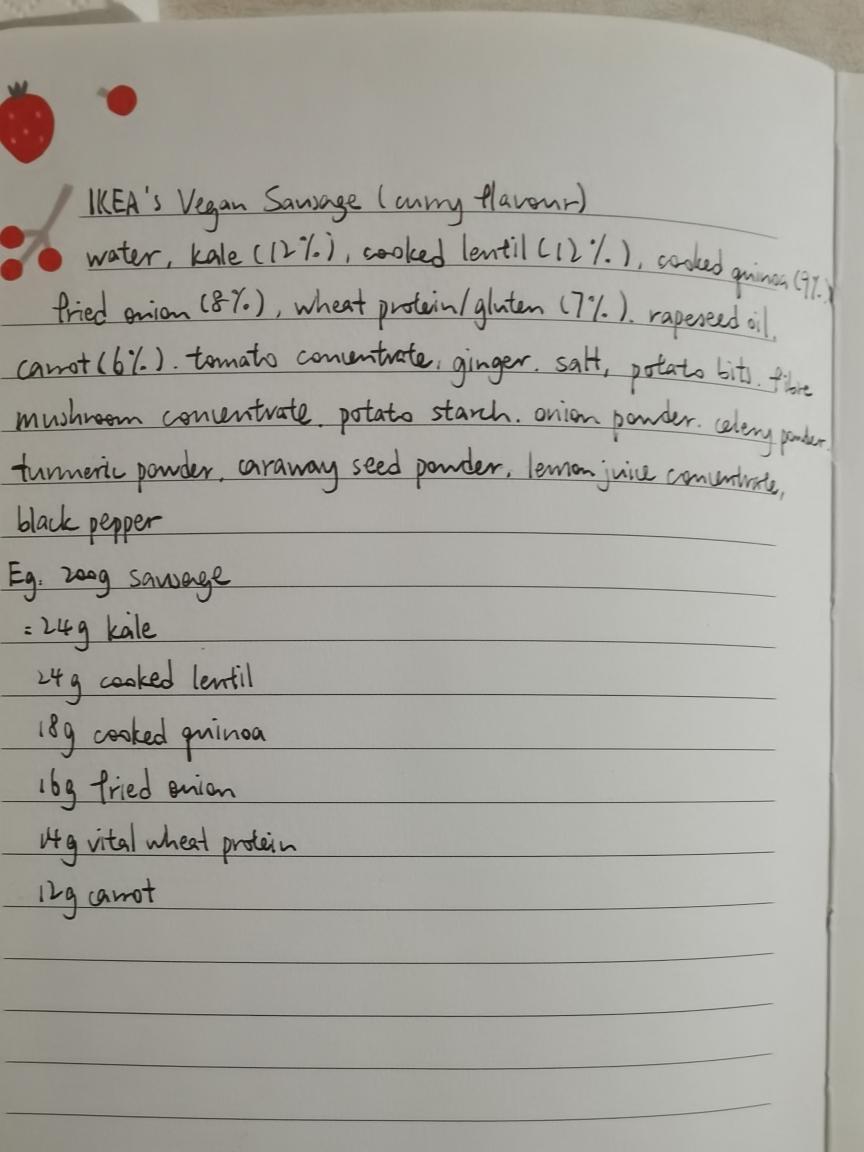 IKEA's Vegan Sausage (curry flavour)
water, kale (12%), cooked lentil (12%), cooked quinoa (9%)
fried onion (8%), wheat protein/gluten (7%), rapeseed oil,
carrot (6%), tomato concentrate, ginger, salt, potato bits, fibre
mushroom concentrate, potato starch, onion powder, celery powder,
turmeric powder, caraway seed powder, lemon juice concentrate,
black pepper
Eg. 200g sausage
= 24g kale
24g cooked lentil
18g cooked quinoa
16g fried onion
14g vital wheat protein
12g carrot